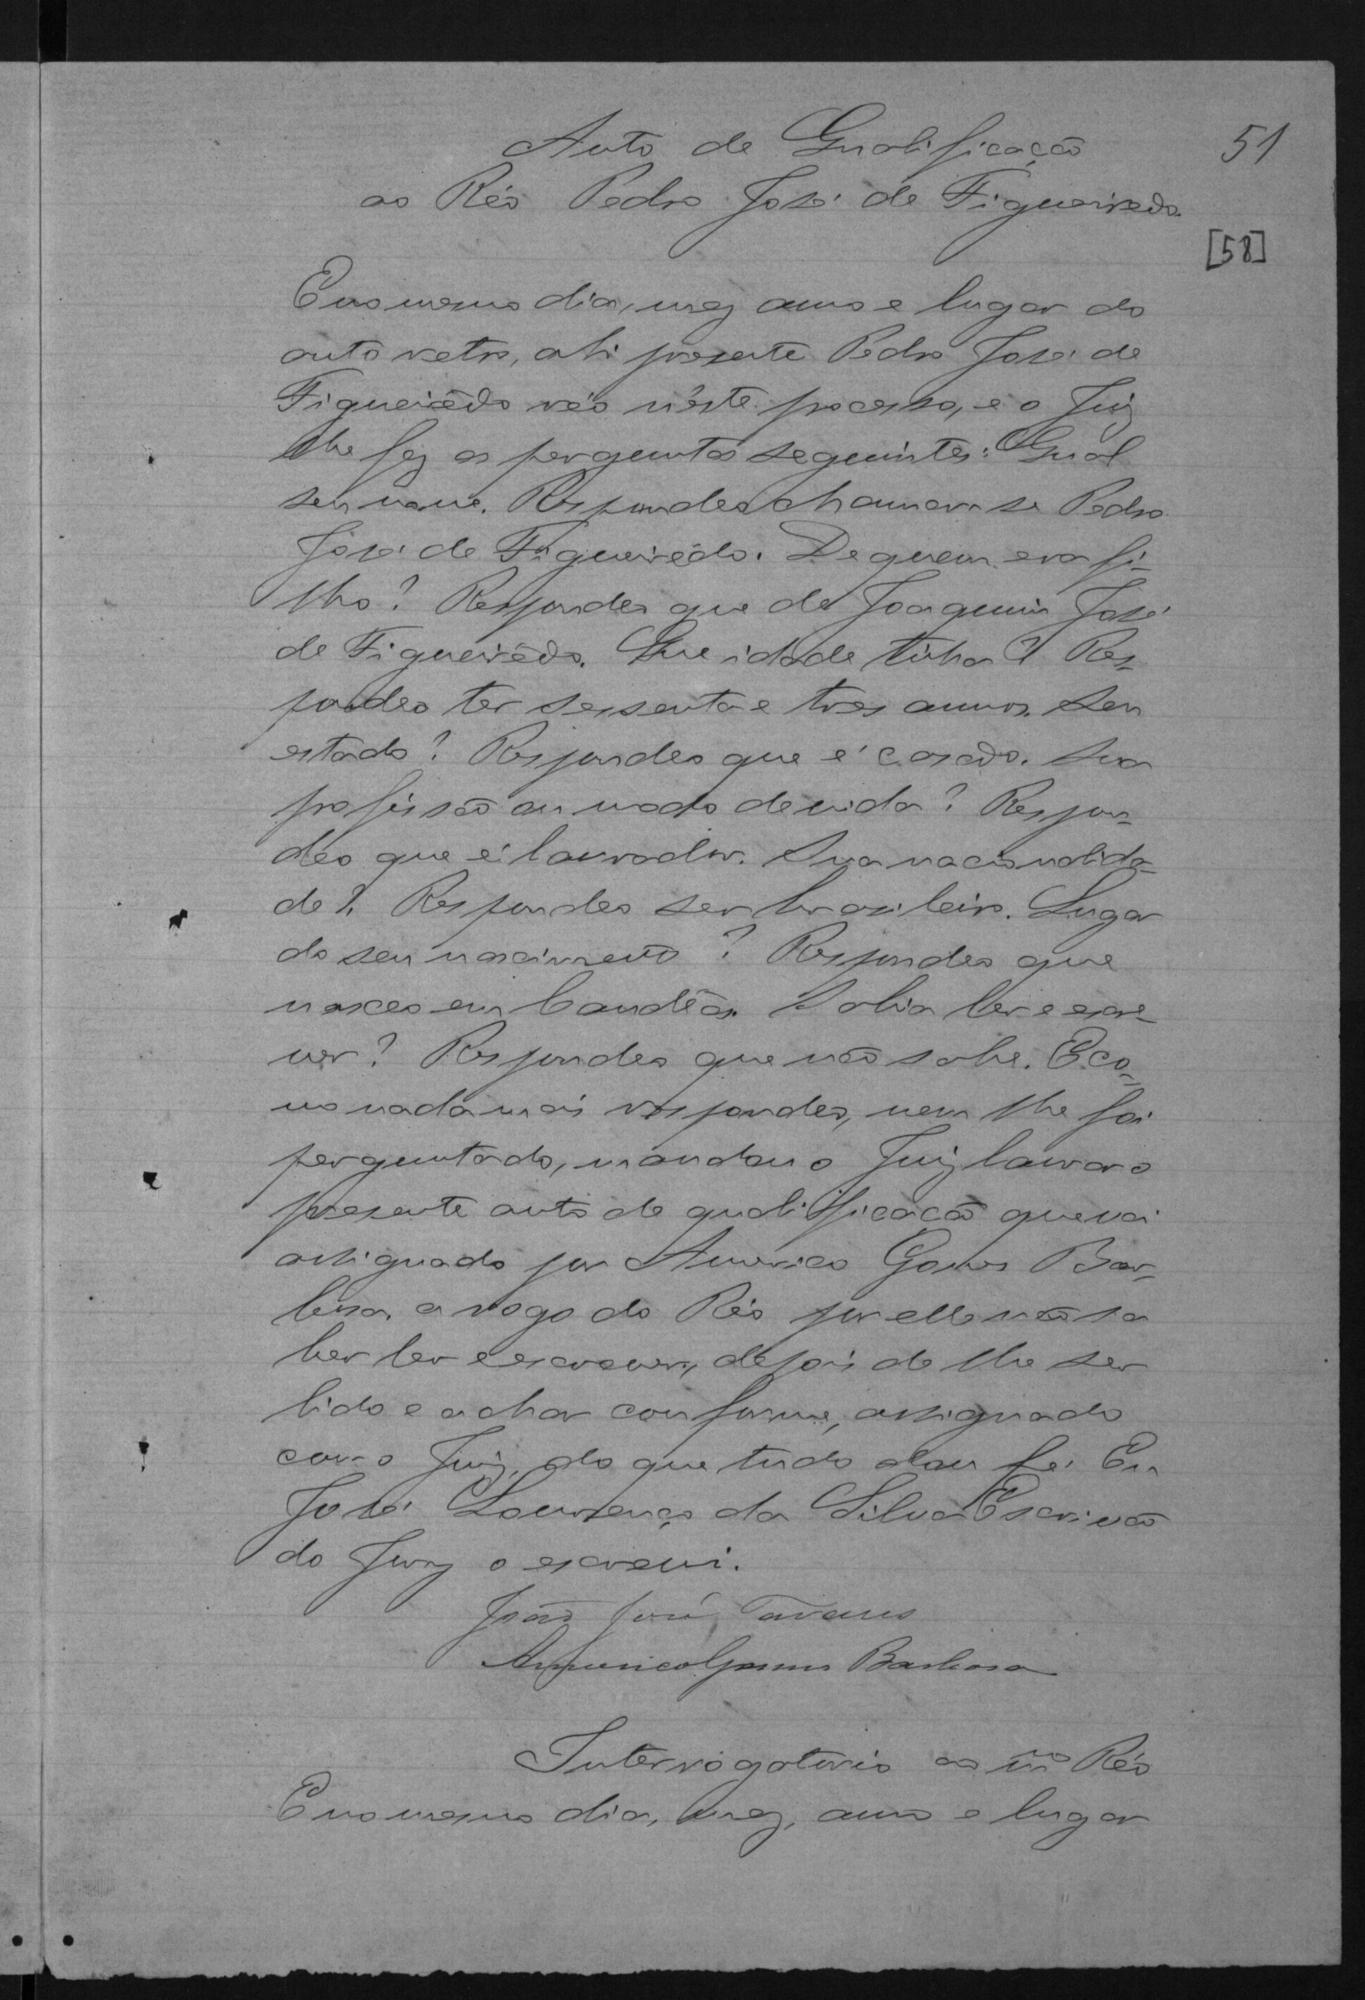 51
Auto de Qualificação
ao Réo Pedro José de Figueirêdo.
[58]
E no mesmo dia, mez anno e lugar do
auto retro, ahi presente Pedro José de
Figueirêdo réo n'este processo, e o Juiz
lhe fez as perguntas seguintes: Qual
seu nome. Respondeo chamar-se Pedro
José de Figueirêdo. De quem era fi-
lho? Respondeo que de Joaquim José
de Figueirêdo. Que idade tinha? Res-
pondeo ter sessenta e tres annos. Seu
estado? Respondeo que é casado. Sua
profissão ou modo de vida? Respon-
deo que é lavrador. Sua nacionalida-
de? Respondeo ser brasileiro. Lugar
do seu nascimento? Respondeo que
nasceo em Candêas. Sabia ler e escre-
ver? Respondeo que não sabe. E co-
mo nada mais respondeo, nem lhe foi
perguntado, mandou o Juiz lavrar o
presente auto de qualificação que vai
assignado por Americo Gomes Bar-
bosa, a rogo do Réo por elle não sa
ber ler e escrever, depois de lhe ser
lido e achar conforme, assignado
com o Juiz, do que tudo dou fé. Eu
José Lourenço da Silva Escrivão
do Jury o escrevi.
João José Tavares
Americo Gomes Barbosa
Interrogatorio ao mmo Réo
E no mesmo dia, mez, anno e lugar